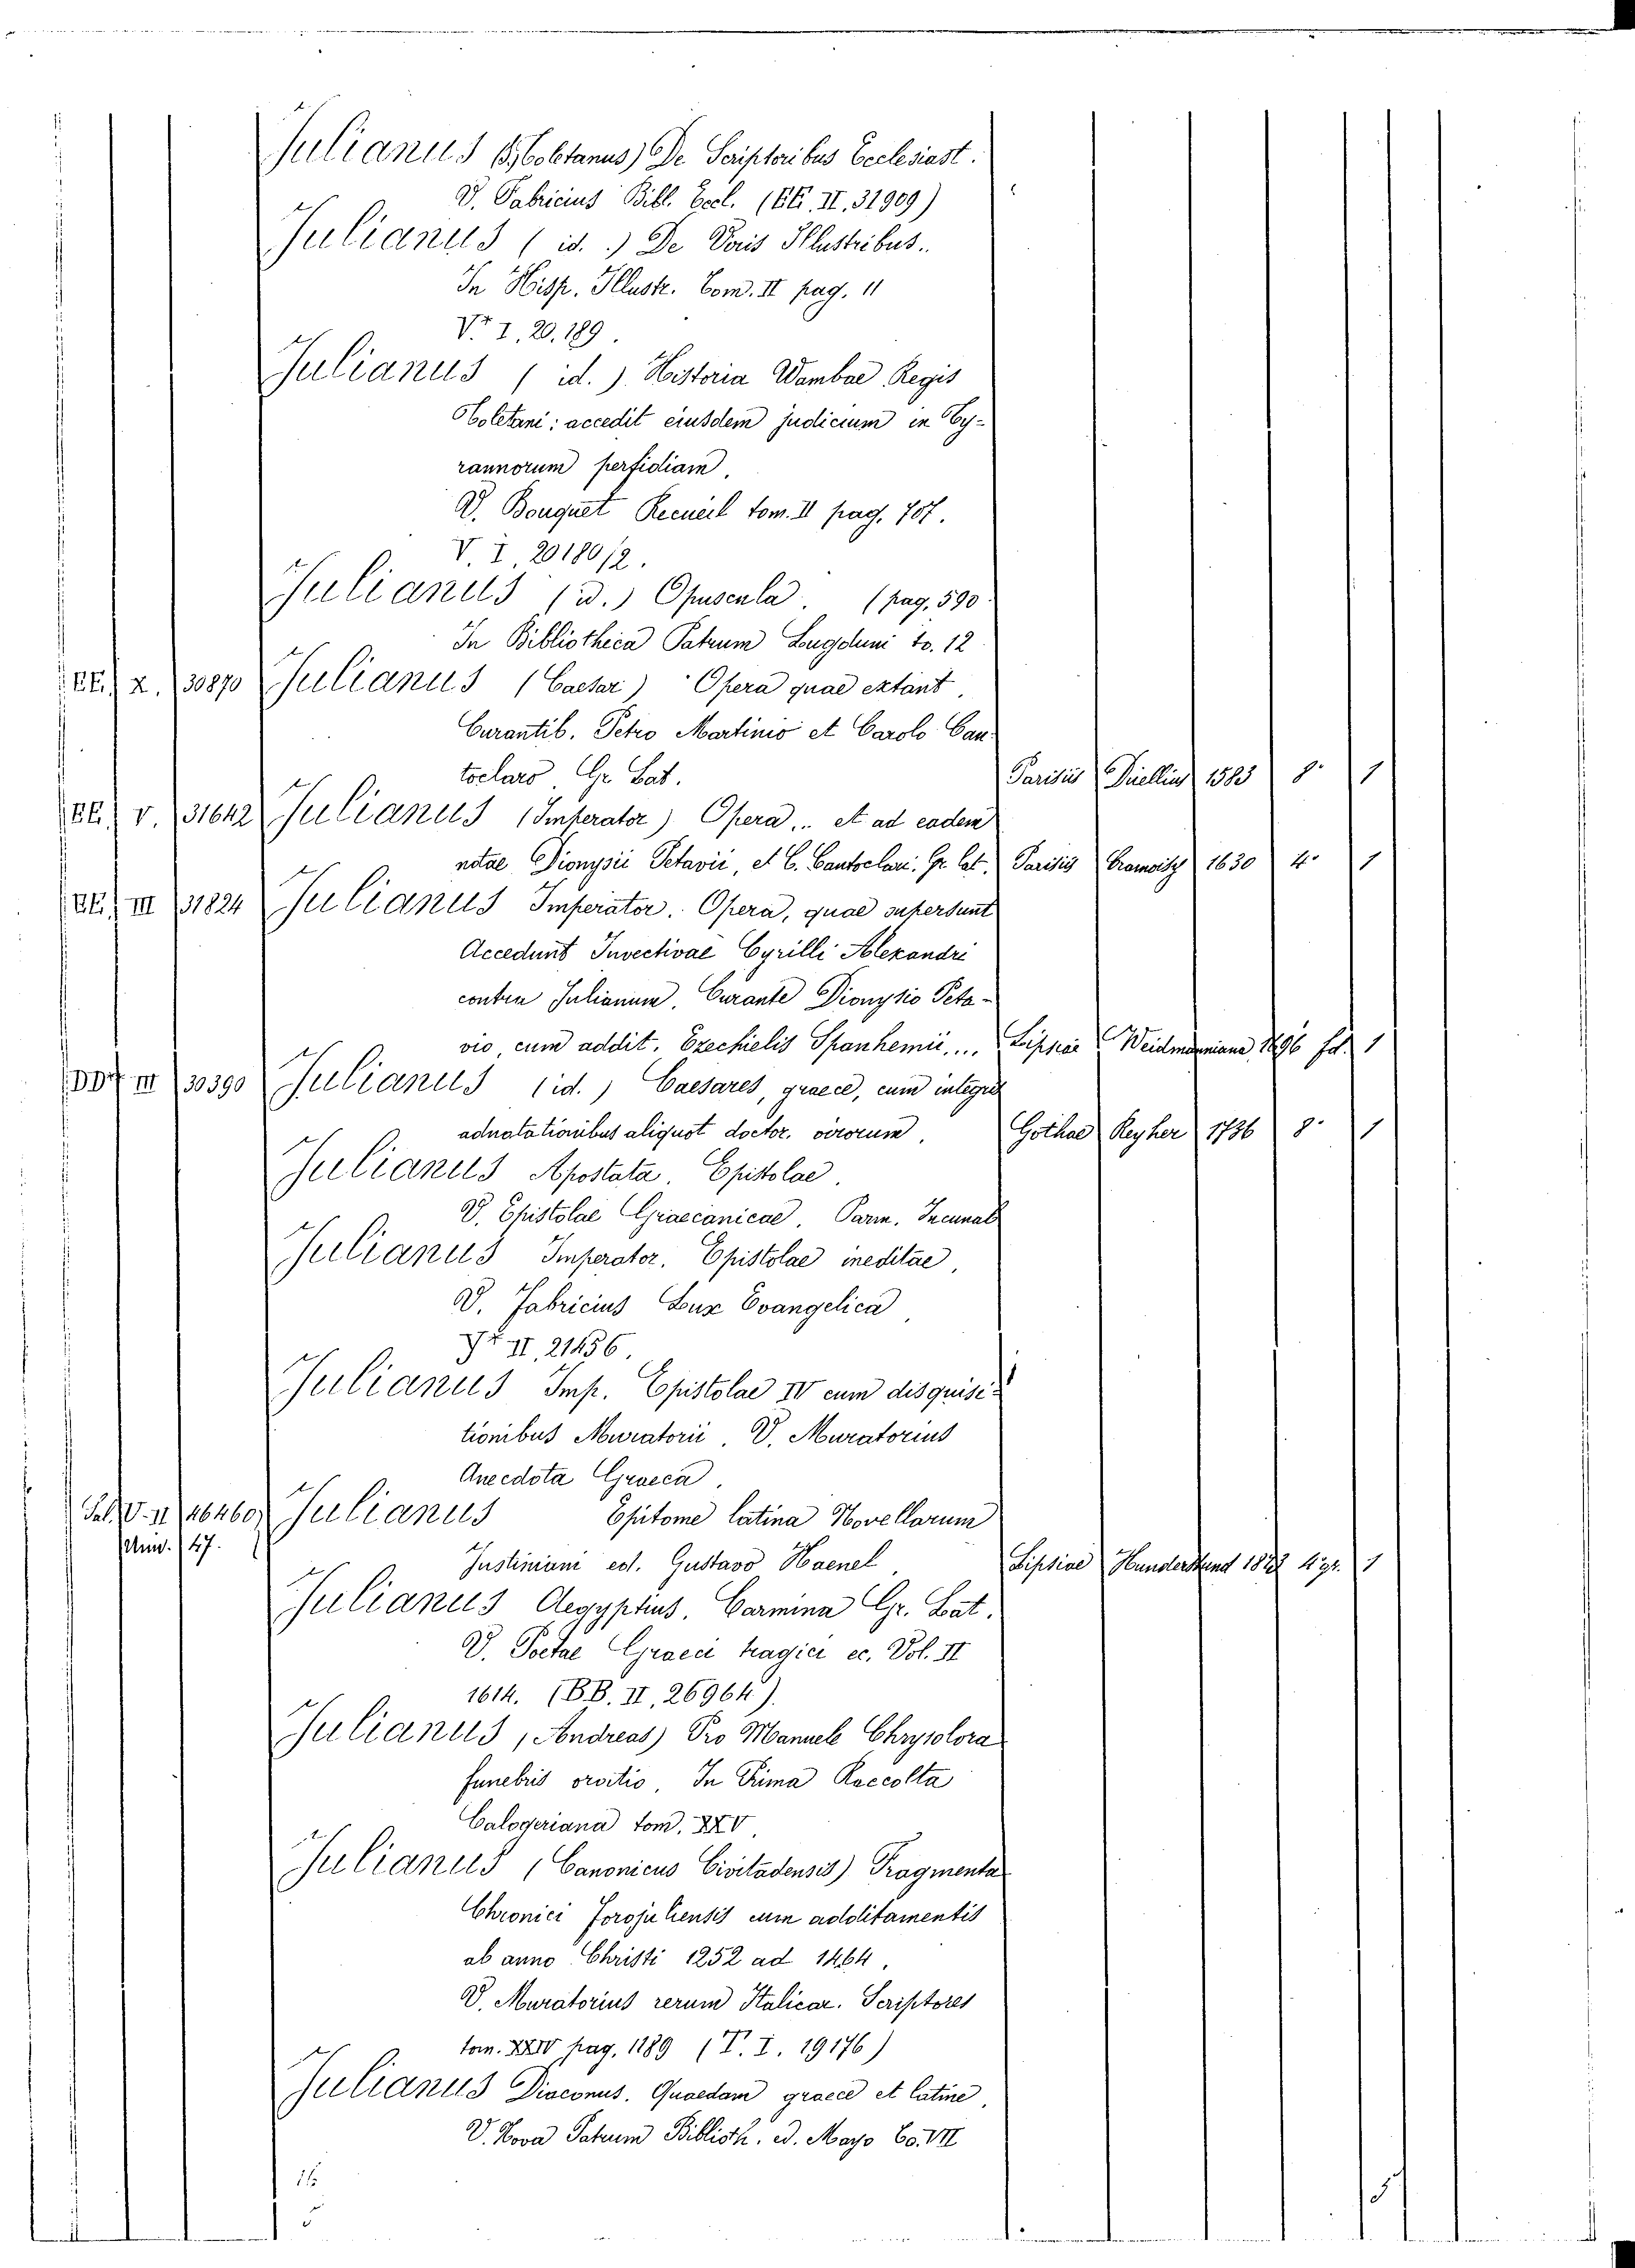 Julianus (S. Toletanus) De Scriptoribus Ecclesiast.
V. Fabricius Bibl. Eccl. (EE. II. 31909)
Julianus (id.) De Viris Illustribus.
In Hisp. Illustr. Tom. II pag. 11
Vr I. 20.189.
Julianus (id.) Historia Wambae Regis
Toletani: accedit eiusdem judicium in Ty-
rannorum perfidiam.
V. Bouquet Recueil tom. II pag. 707.
V. I. 20180/2.
Julianus (id.) Opuscula. (pag. 590.
In Bibliotheca Patrum Lugduni to. 12
EE. X. 30870 Julianus (Caesar) Opera quae extant.
Curantib. Petro Martinio et Carolo Can-
toclaro Gr. Lat. Parisiis Duellius 1583 8° 1
EE. V. 31642 Julianus (Imperator) Opera... et ad eadem
notae Dionysii Petavii, et C. Cantoclari. Gr. lat. Parisiis Cramoisy 1630 4° 1
EE. III 31824 Julianus Imperator. Opera, quae supersunt
Accedunt Invectivae Cyrilli Alexandri
contra Julianum. Curante Dionysio Peta-
vio, cum addit. Ezechielis Spanhemii... Lipsiae Weidmanniana 1696 fol. 1
DD III 30390 Julianus (id.) Caesares, graece, cum integris
adnotationibus aliquot doctor. virorum. Gothae Reyher 1736 8° 1
Julianus Apostata. Epistolae.
V. Epistolae Graecanicae. Parm. Incunab
Julianus Imperator. Epistolae ineditae.
V. Fabricius Lux Evangelica
Vr II. 21456.
Julianus Imp. Epistolae IV cum disquisi-
tionibus Muratorii. V. Muratorius
Anecdota Graeca.
Sal. V. II 46460 Julianus Epitome latina Novellarum
Min. 47.
Justiniani ed. Gustavo Haenel. Lipsiae Hunderstund 1873 4° gr. 1
Julianus Aegyptius. Carmina Gr. Lat.
V. Poetae Graeci tragici ec. Vol. II
1614. (BB. II, 26964).
Julianus, (Andreas) Pro Manuele Chrysolora
funebris oratio. In Prima Raccolta
Calogeriana tom. XXV.
Julianus (Canonicus Civitadensis) Fragmenta
Chronici Forojuliensis cum additamentis
ab anno Christi 1252 ad 1464.
V. Muratorius rerum Italicar. Scriptores
tom. XXIV pag. 1189 (T. I. 19176)
Julianus Diaconus. Quaedam graece et latine.
V. Nova Patrum Biblioth. ed. Mayo To. VII
16
5
5